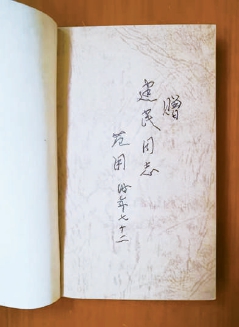 赠
建民同志
范用 时年七十二